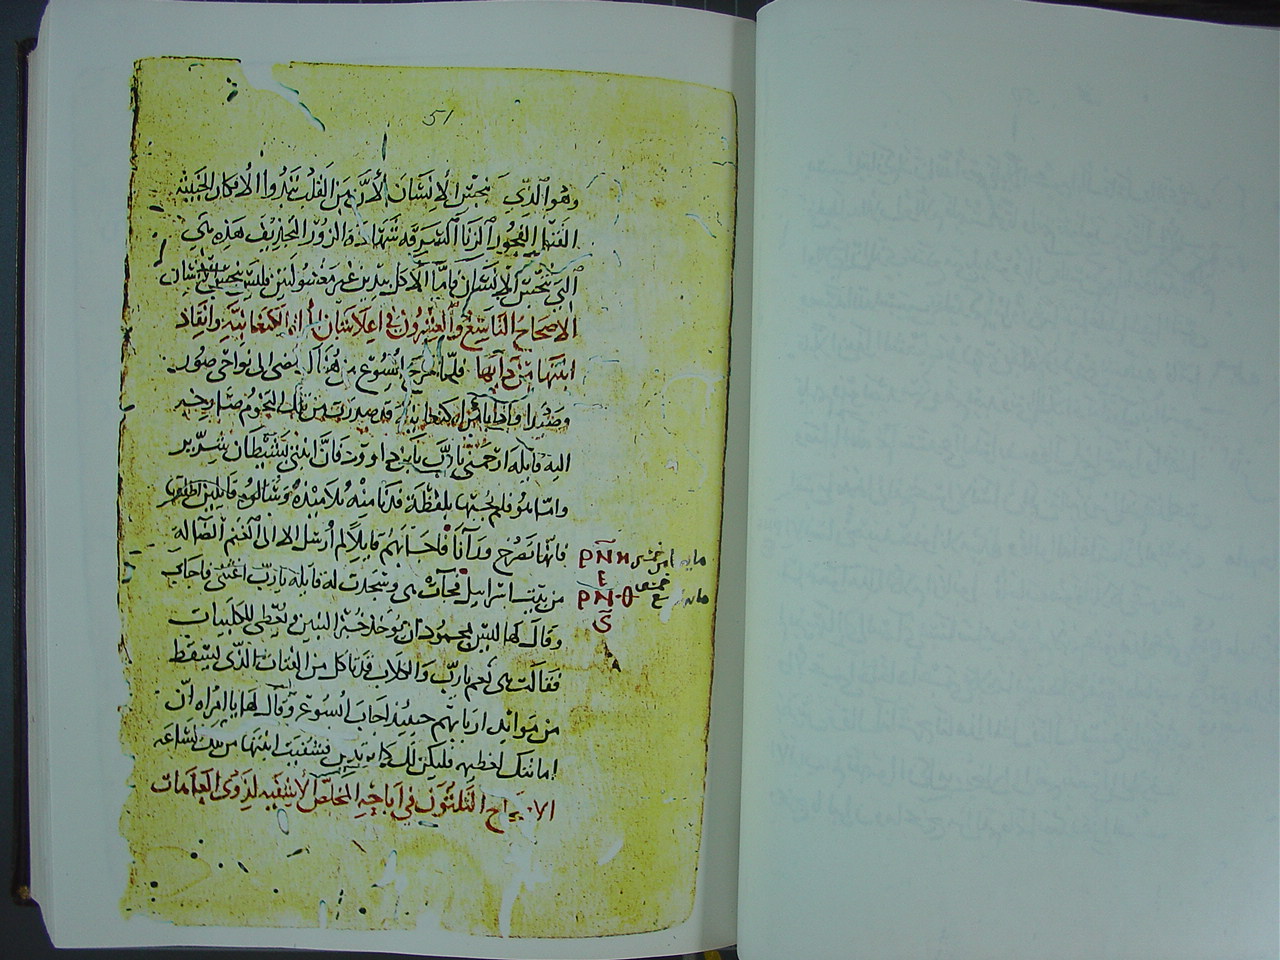 51
وهو الذي ينجس الإنسان لأن من القلب تبدوا الأفكار الخبيثه
القتل الفجور الزنا السرقه شهادة الزور التجاديف هذه هي
التي تنجس الإنسان فاما الأكل بيدين غير مغسولتين فليس ينجس الإنسان
الاصحاح التاسع والعشرون في اعلا شان الكنعانيه وانقاد
ابنتها من دآيها فلما خرج يسوع من هناك مضى الى نواحي صور
وصيدا واذا بامراه كنعانيه قد صدرت من تلك التخوم صارخه
اليه قايله ارحمني يا رب يا بن داوود فان ابنتي بشيطان شرير
واما هو فلم يجبها بلفظة فدنا منه تلاميذه وسالوه قايلين اطلقها
فانها تصرخ ورآنا فاجابهم قايلا لم أرسل الا الى الغنم الضاله
من بيت اسرائيل فجآت هي وسجدت له قايله يا رب اعني فاجاب
وقال لها ليس بمحمود ان يوخذ خبز البنين ويعطى للكليبات
فقالت هي نعم يا رب والكلاب قد تاكل من الفتات الذي يسقط
من موائد اربابهم حينيذ اجاب يسوع وقال لها يا امراه ان
امانتك لعظيمه فليكن لك كما تريدين فشفيت ابنتها من تلك الساعه
الاصحاح الثلثون في اباحة المخلص الاشفيه لذوي العاهات
ⲣⲛⲏ
ⲉ
ⲣⲛⲑ
ⲋ